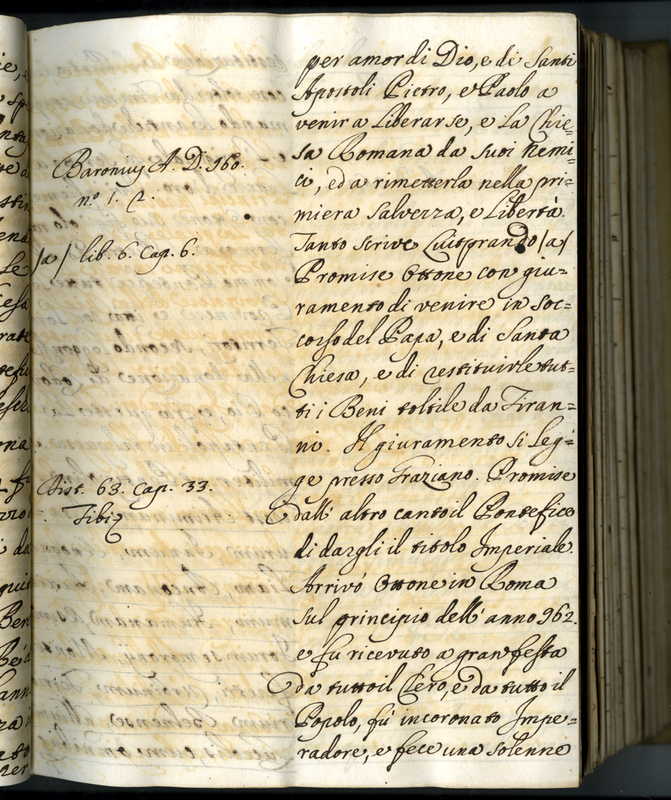 Baronius A. D. 960.
nº 1. 2.
/a/ lib. 6. Cap. 6.
Dist. 63. Cap. 33.
Tibi
per amor di Dio, e di Santi
Apostoli Pietro, e Paolo a
venir a Liberarse, e La Chie=
sa Romana da suoi Nemi=
ci, ed a rimetterla nella pri=
miera Salvezza, e Libertà.
Tanto scrive Luitprando /a/
Promise Ottone con giu=
ramento di venire in soc=
corso del Papa, e di Santa
Chiesa, e di restituirle tut=
ti i Beni toltile da Tiran=
ni. Il giuramento si Leg=
ge presso Graziano. Promise
dall' altro canto il Pontefice
di dargli il titolo Imperiale.
Arrivò Ottone in Roma
sul principio dell' anno 962.
e fu ricevuto a gran festa
da tutto il Clero, e da tutto il
Popolo, fù incoronato Impe=
radore, e fece una solenne